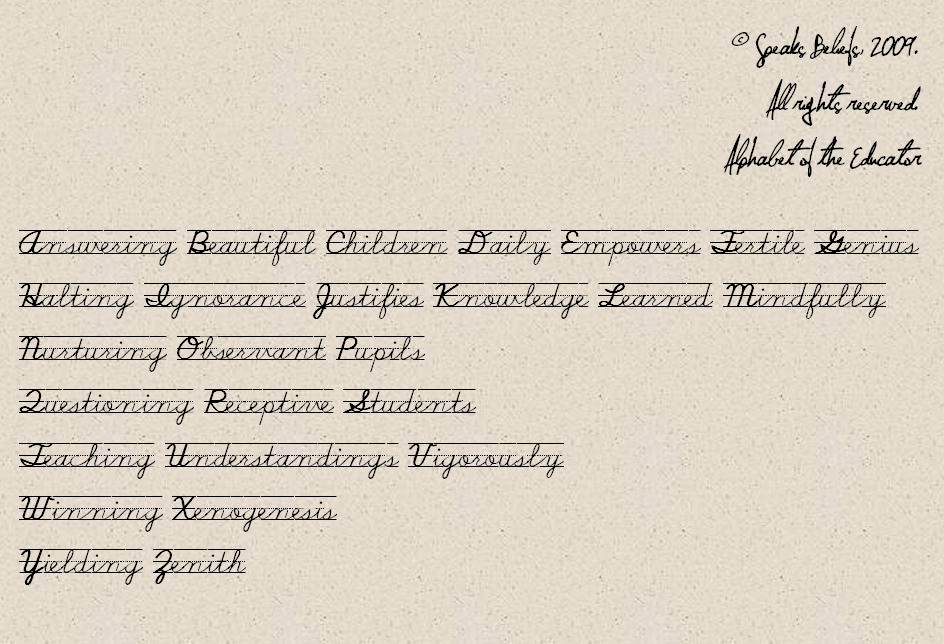 © Speaks Beliefs, 2009.
All rights reserved.
Alphabet of the Educator
Answering Beautiful Children Daily Empowers Fertile Genius
Halting Ignorance Justifies Knowledge Learned Mindfully
Nurturing Observant Pupils
Questioning Receptive Students
Teaching Understandings Vigorously
Winning Xenogenesis
Yielding Zenith